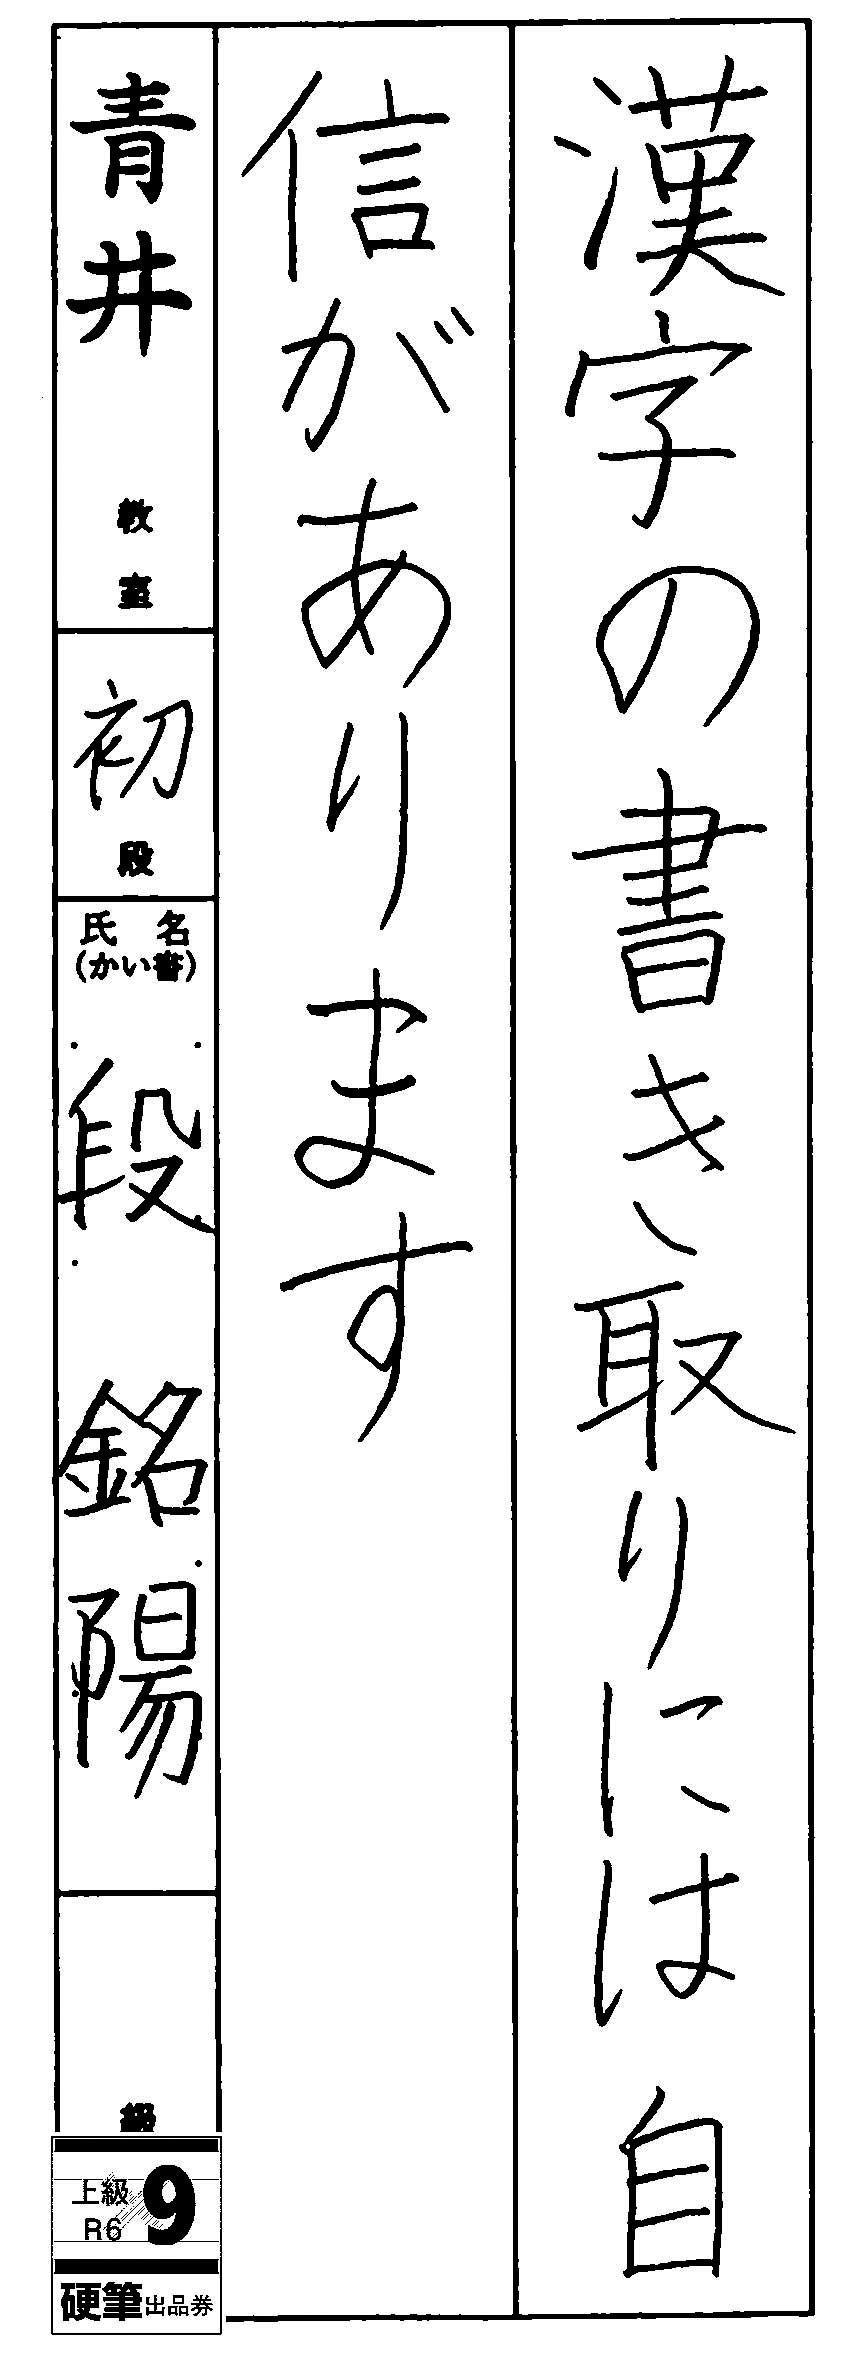 漢字の書き取りには自
信があります
青井
教室
初
段
氏名
(かい書)
段 銘陽
級
上級
R6
9
硬筆出品券